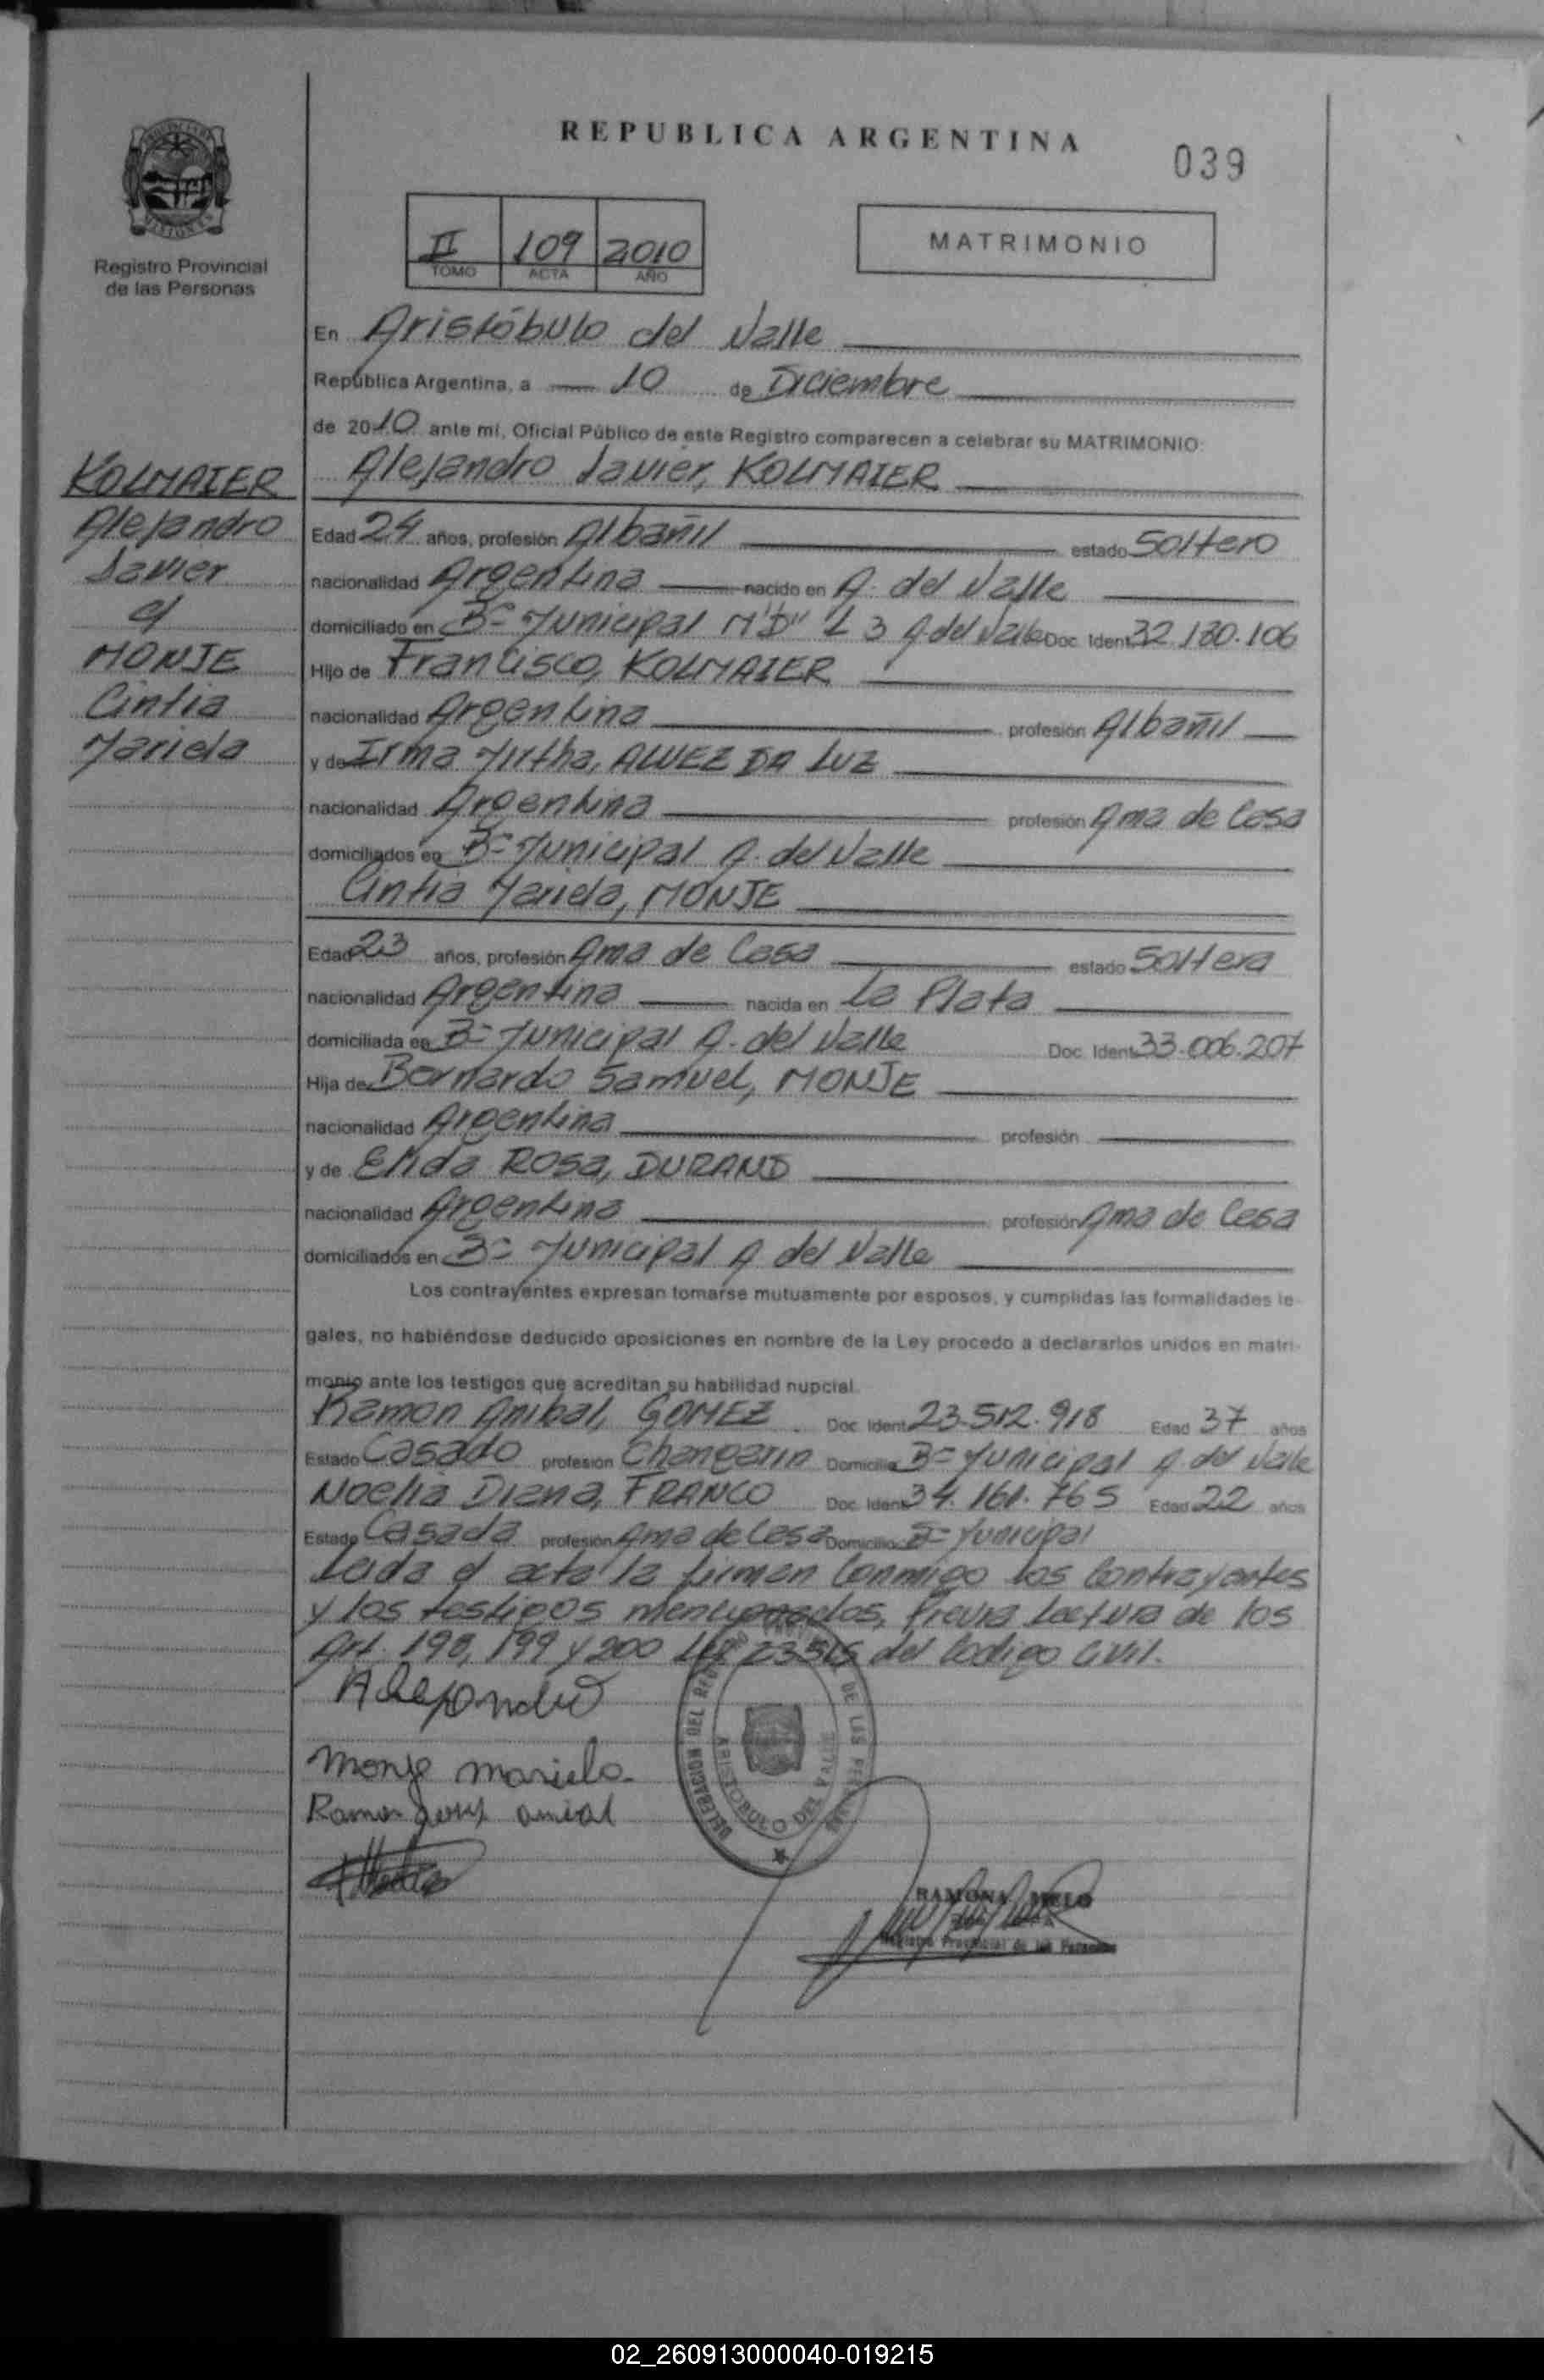 REPUBLICA ARGENTINA
039
Registro Provincial
de las Personas
II 109 2010
TOMO ACTA AÑO
MATRIMONIO
En Aristóbulo del Valle
República Argentina, a 10 de Diciembre
de 2010 ante mí, Oficial Público de este Registro comparecen a celebrar su MATRIMONIO:
KOLMAIER
Alejandro
Javier
c/
MONJE
Cintia
Mariela
Alejandro Javier, KOLMAIER
Edad 24 años, profesión Albañil estado Soltero
nacionalidad Argentina nacido en A. del Valle
domiciliado en Bº Municipal M"D" L 3 A. del Valle Doc. Ident. 32.130.106
Hijo de Francisco, KOLMAIER
nacionalidad Argentina profesión Albañil
y de Irma Mirtha, ALVEZ DA LUZ
nacionalidad Argentina profesión Ama de Casa
domiciliados en Bº Municipal A. del Valle
Cintia Mariela, MONJE
Edad 23 años, profesión Ama de Casa estado Soltera
nacionalidad Argentina nacida en La Plata
domiciliada en Bº Municipal A. del Valle Doc. Ident. 33.006.207
Hija de Bernardo Samuel, MONJE
nacionalidad Argentina profesión
y de Elida Rosa, DURAND
nacionalidad Argentina profesión Ama de Casa
domiciliados en Bº Municipal A. del Valle
Los contrayentes expresan tomarse mutuamente por esposos, y cumplidas las formalidades le-
gales, no habiéndose deducido oposiciones en nombre de la Ley procedo a declararlos unidos en matri-
monio ante los testigos que acreditan su habilidad nupcial.
Ramon Anibal, GOMEZ Doc. Ident. 23.512.918 Edad 37 años
Estado Casado profesión Changarin Domicilio Bº Municipal A. del Valle
Noelia Diana, FRANCO Doc. Ident. 34.161.765 Edad 22 años
Estado Casada profesión Ama de Casa Domicilio Bº Municipal
Leida el acta la firman Conmigo los Contrayentes
y los testigos mencionados, Previa Lectura de los
Art. 198, 199 y 200 Ley 23515 del Codigo Civil.
Alejandro
Monje Mariela.
Ramon anibal
DELEGACION DEL REGISTRO DE LAS PERSONAS
ARISTOBULO DEL VALLE
RAMONA MELO
Registro Provincial de las Personas
02_260913000040-019215